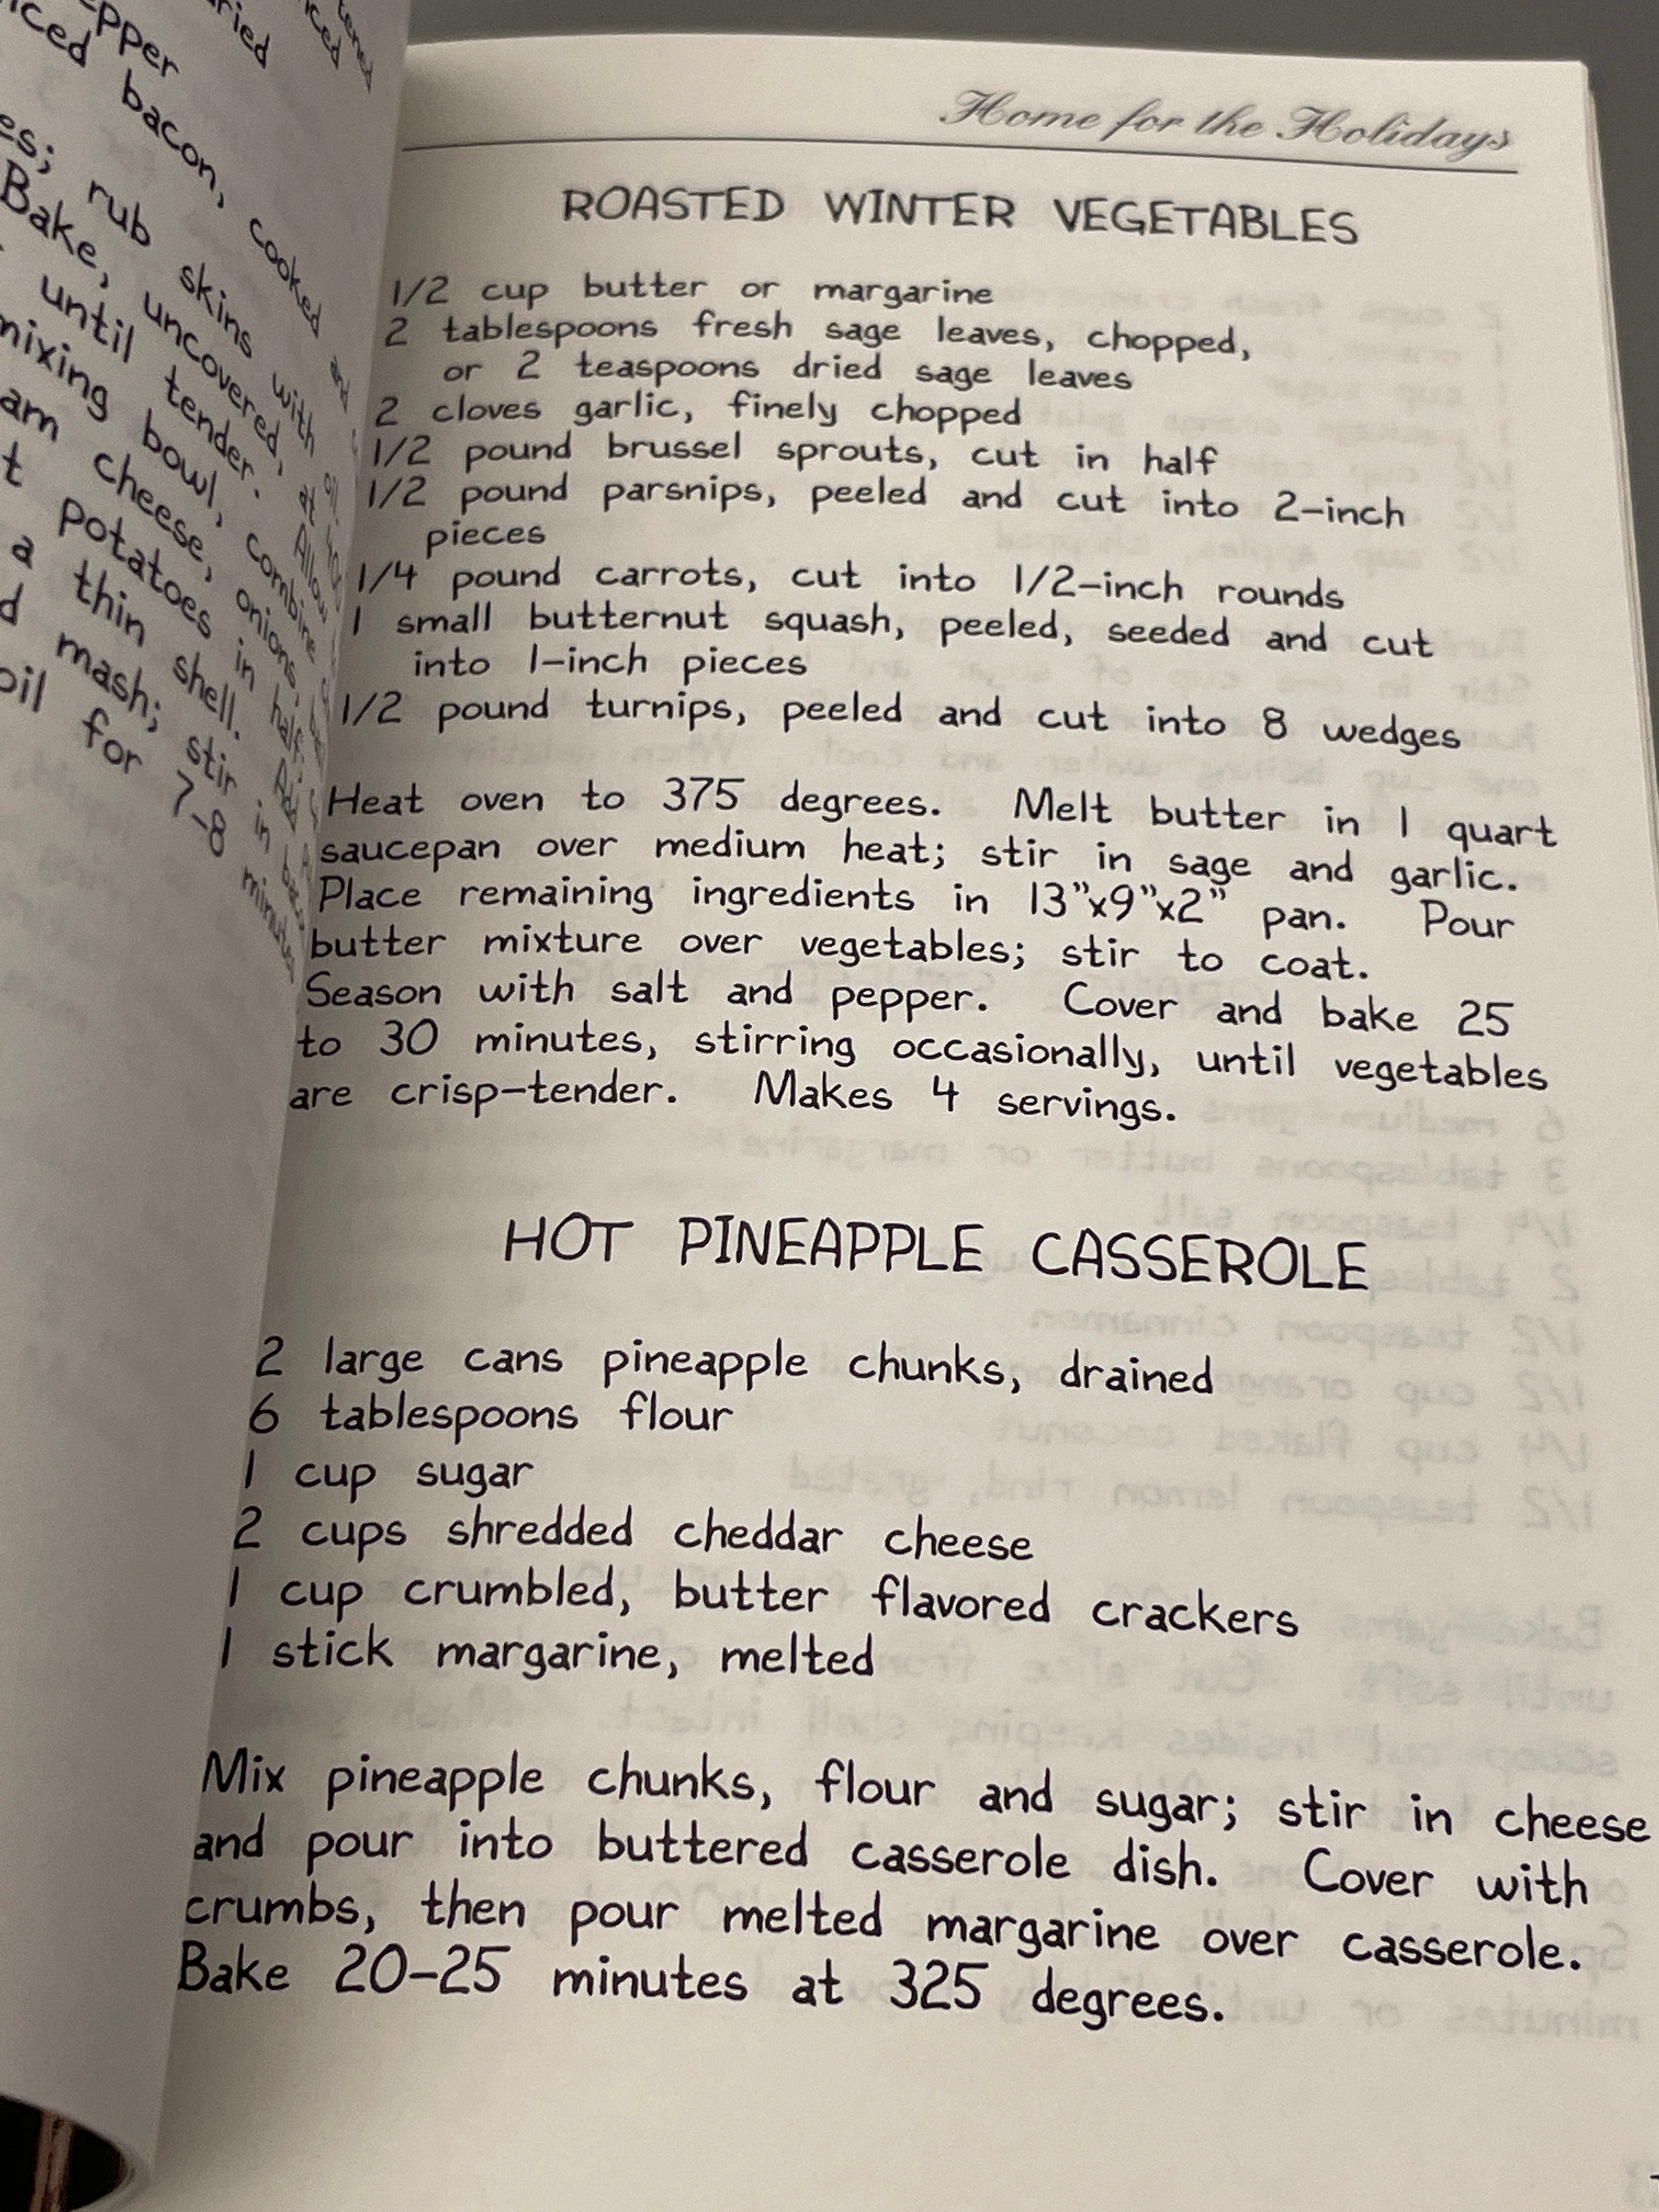 epper
bacon, cooked and
es; rub skins with
Bake, uncovered, at
until tender. Allow
mixing bowl, combine
am cheese, onions,
t potatoes in half;
a thin shell.
d mash; stir in
oil for 7-8 minutes
Home for the Holidays
ROASTED WINTER VEGETABLES
1/2 cup butter or margarine
2 tablespoons fresh sage leaves, chopped,
or 2 teaspoons dried sage leaves
2 cloves garlic, finely chopped
1/2 pound brussel sprouts, cut in half
1/2 pound parsnips, peeled and cut into 2-inch
pieces
1/4 pound carrots, cut into 1/2-inch rounds
1 small butternut squash, peeled, seeded and cut
into 1-inch pieces
1/2 pound turnips, peeled and cut into 8 wedges
Heat oven to 375 degrees. Melt butter in 1 quart
saucepan over medium heat; stir in sage and garlic.
Place remaining ingredients in 13"x9"x2" pan. Pour
butter mixture over vegetables; stir to coat.
Season with salt and pepper. Cover and bake 25
to 30 minutes, stirring occasionally, until vegetables
are crisp-tender. Makes 4 servings.
HOT PINEAPPLE CASSEROLE
2 large cans pineapple chunks, drained
6 tablespoons flour
1 cup sugar
2 cups shredded cheddar cheese
1 cup crumbled, butter flavored crackers
1 stick margarine, melted
Mix pineapple chunks, flour and sugar; stir in cheese
and pour into buttered casserole dish. Cover with
crumbs, then pour melted margarine over casserole.
Bake 20-25 minutes at 325 degrees.